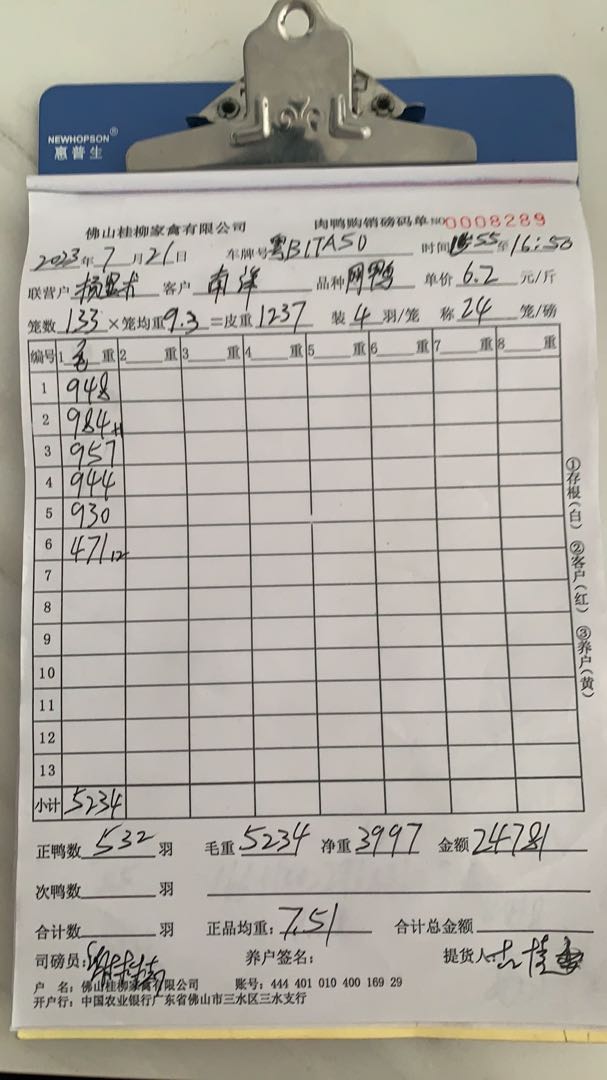 NEWHOPSON®
惠普生
佛山桂柳家禽有限公司 肉鸭购销磅码单 NO 0008289
2023年7月21日 车牌号粤B1TA50 时间15:55至16:50
联营户 客户 南洋 品种 鸭 单价6.2元/斤
笼数133×笼均重9.3=皮重1237 装4羽/笼 称24笼/磅
编号 1毛重 2重 3重 4重 5重 6重 7重 8重
1 948
2 984
3 957
4 944
5 930
6 471 12
7
8
9
10
11
12
13
小计 5234
正鸭数532羽 毛重5234 净重3997 金额24781
次鸭数 羽
合计数 羽 正品均重:7.51 合计总金额
司磅员: 养户签名: 提货人:
户 名:佛山桂柳家禽有限公司 账号:444 401 010 400 169 29
开户行:中国农业银行广东省佛山市三水区三水支行
①存根(白) ②客户(红) ③养户(黄)